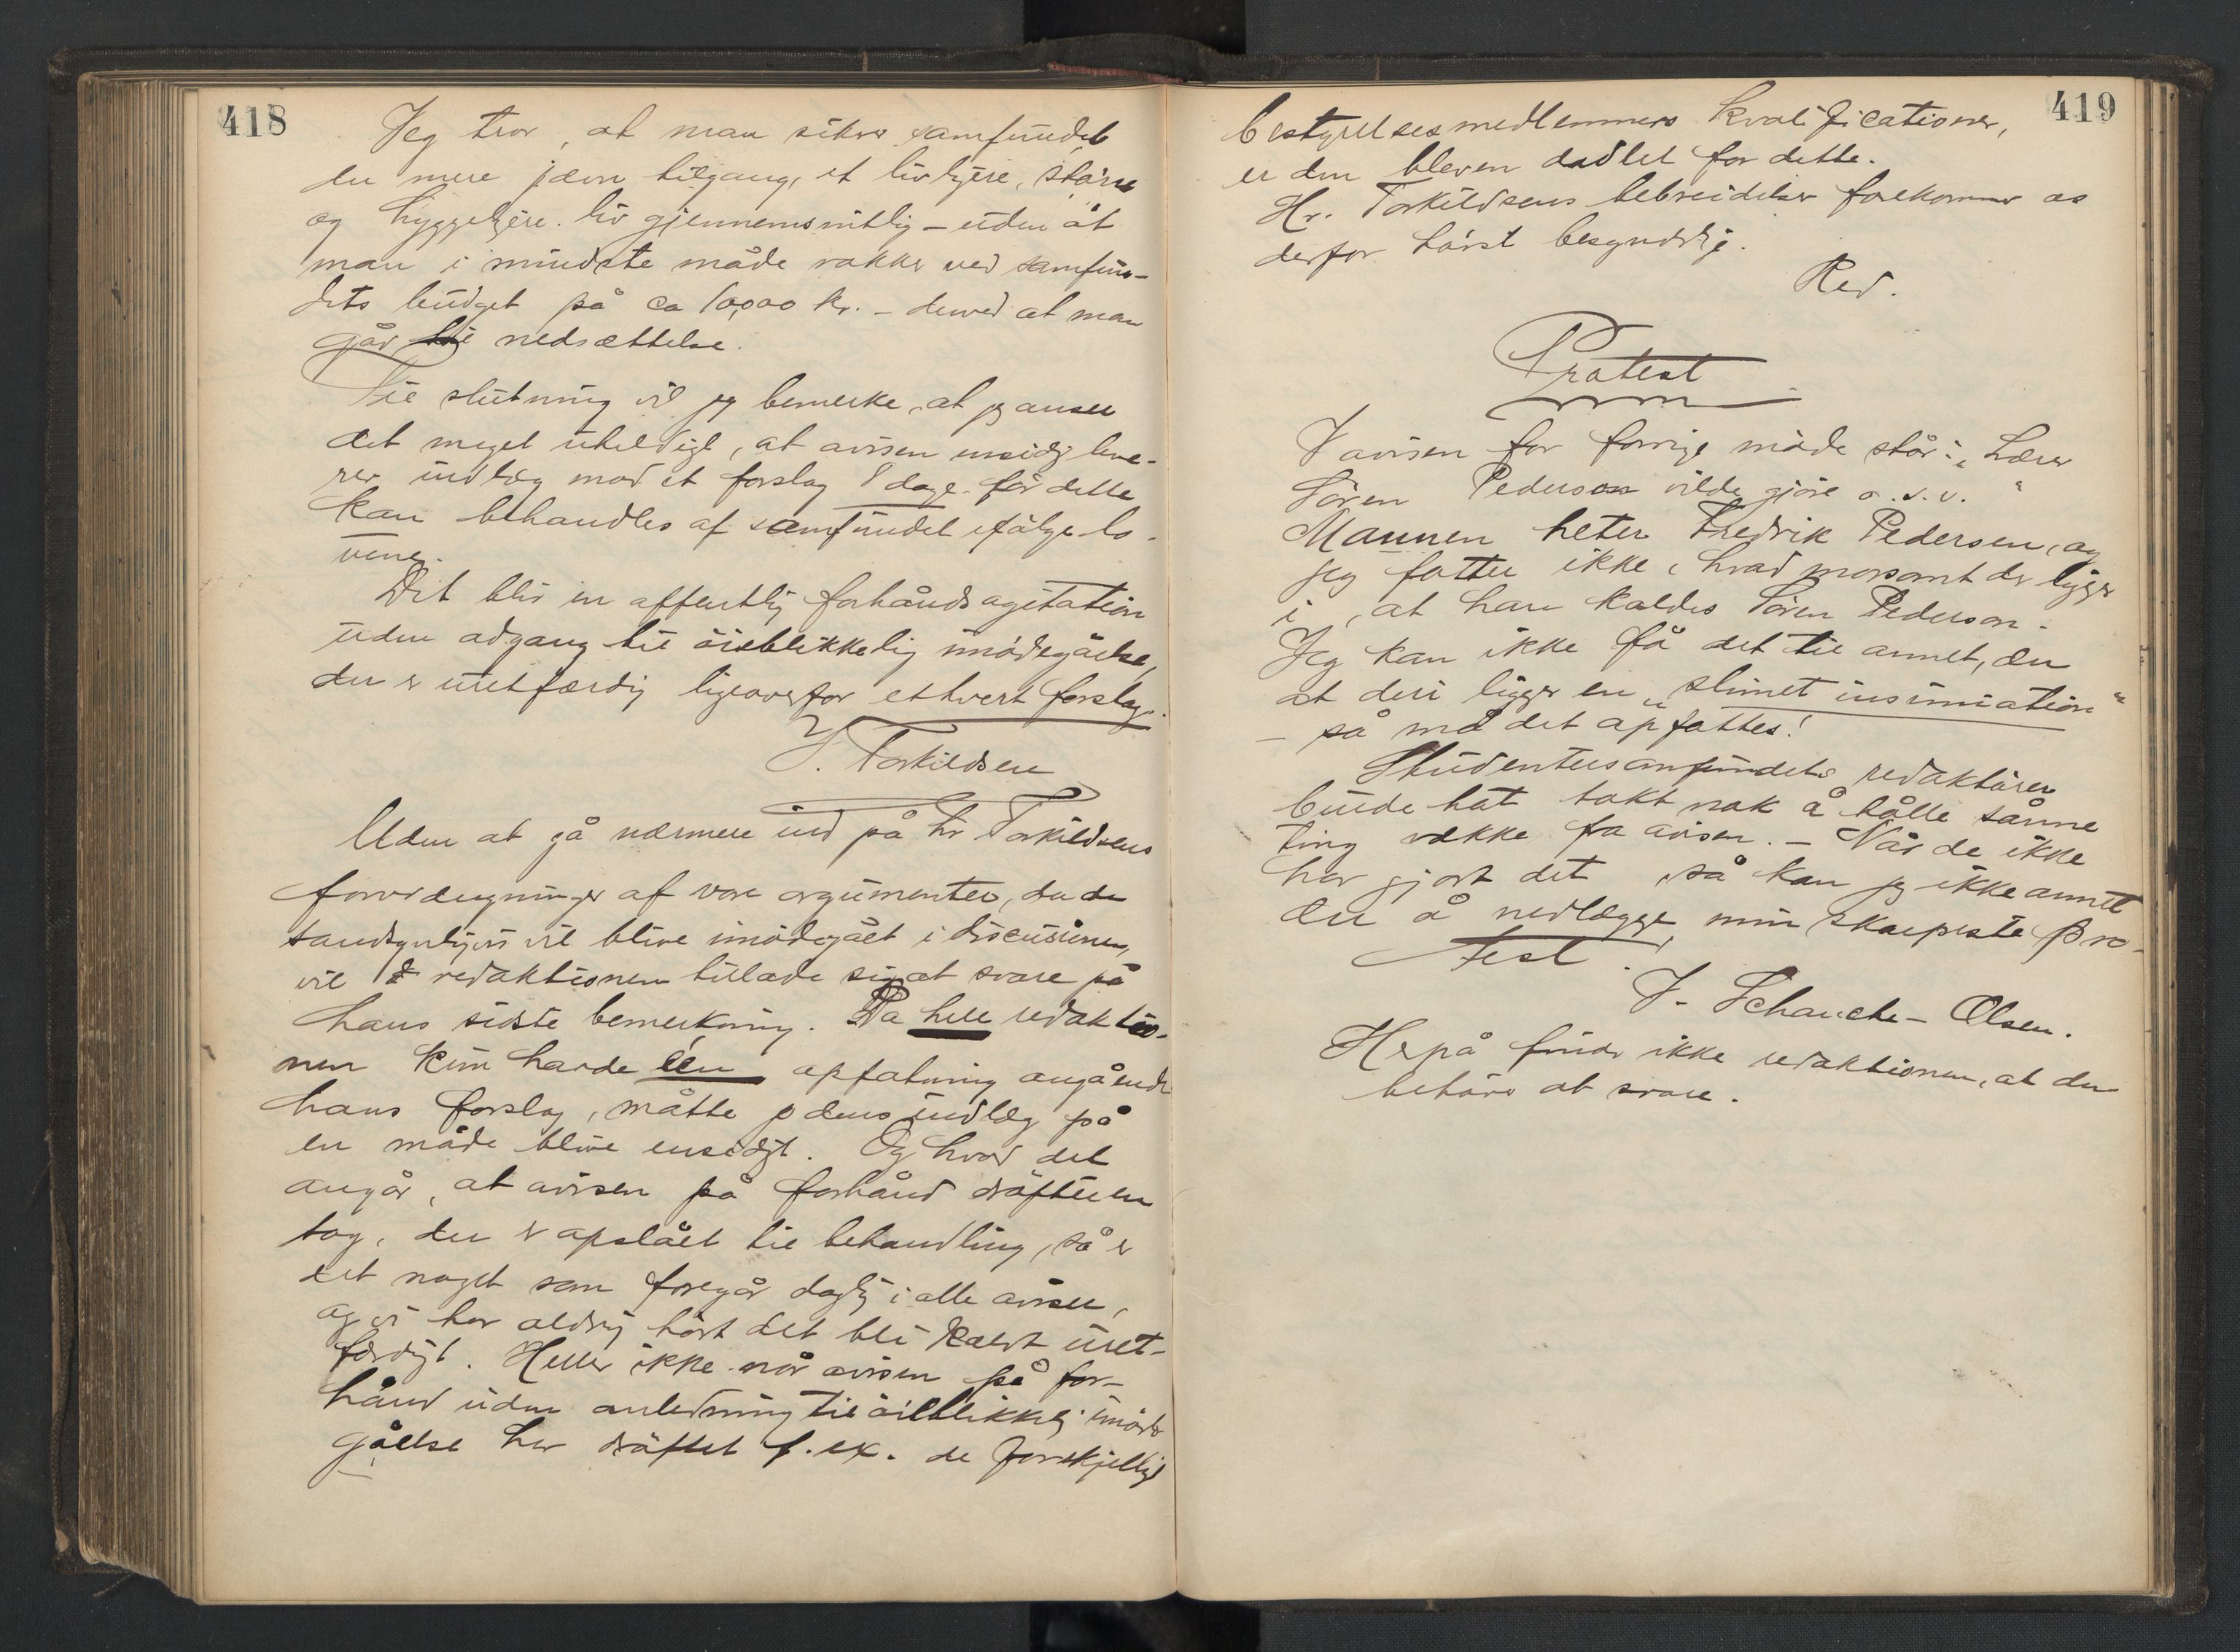 418
Jeg tror, at man sikrer samfundet
en mere jævn tilgang, et livligere, större
og hyggeligere liv gjennemsnitlig – uden at
man i mindste måde rokker ved samfun-
dets budget på ca 10,000 kr. – derved at man
går til nedsættelse.
Til slutning vil jeg bemerke, at jeg anser
det meget uheldigt, at avisen ensidig leve-
rer indlæg mod et forslag 8 dage för dette
kan behandles af samfundet ifölge lo-
vene.
Det blir en offentlig forhåndsagitation
uden adgang til öieblikkelig imödegåelse,
der er uretfærdig ligeoverfor ethvert forslag.
J. Torkildsen
Uden at gå nærmere ind på hr Torkildsens
fordreininger af vore argumenter, da de
sandsynligvis vil blive imödegået i discusionen,
vil redaktionen tillade sig at svare på
hans sidste bemerkning. Da hele redaktio-
nen kun havde één opfatning angående
hans forslag, måtte jo dens indlæg på
en måde blive ensidigt. Og hvad det
angår, at avisen på forhånd dröfter en
sag, der er opslået til behandling, så er
det noget som foregår daglig i alle aviser,
og vi har aldrig hört det bli kaldt uret-
færdigt. Heller ikke når avisen på for-
hånd uden anledning til öieblikkelig imöde
gåelse har dröftet f. ex. de forskjellige
419
bestyrelsesmedlemmers kvalificationer,
er den bleven dadlet for dette.
Hr. Torkildsens bebreidelser forekommer os
derfor höist besynderlige.
Red.
Protest
I avisen for forrige möde står: „Lærer
Sören Pederson vilde gjöre o. s. v. “
Mannen heter Fredrik Pedersen, og
jeg fatter ikke, hvad morsomt der ligger
i, at han kaldes Sören Pederson.
Jeg kan ikke få det til annet, en
at deri ligger en „slimet insinuation“
– så må det opfattes!
Studentersamfundets redaktörer
burde hat takt nok å hålle sånne
ting vække fra avisen. – Når de ikke
har gjort det, så kan jeg ikke annet
en å nedlægge min skarpeste pro-
test.
J. Schanche-Olsen.
Herpå finder ikke redaktionen, at den
behöver at svare.